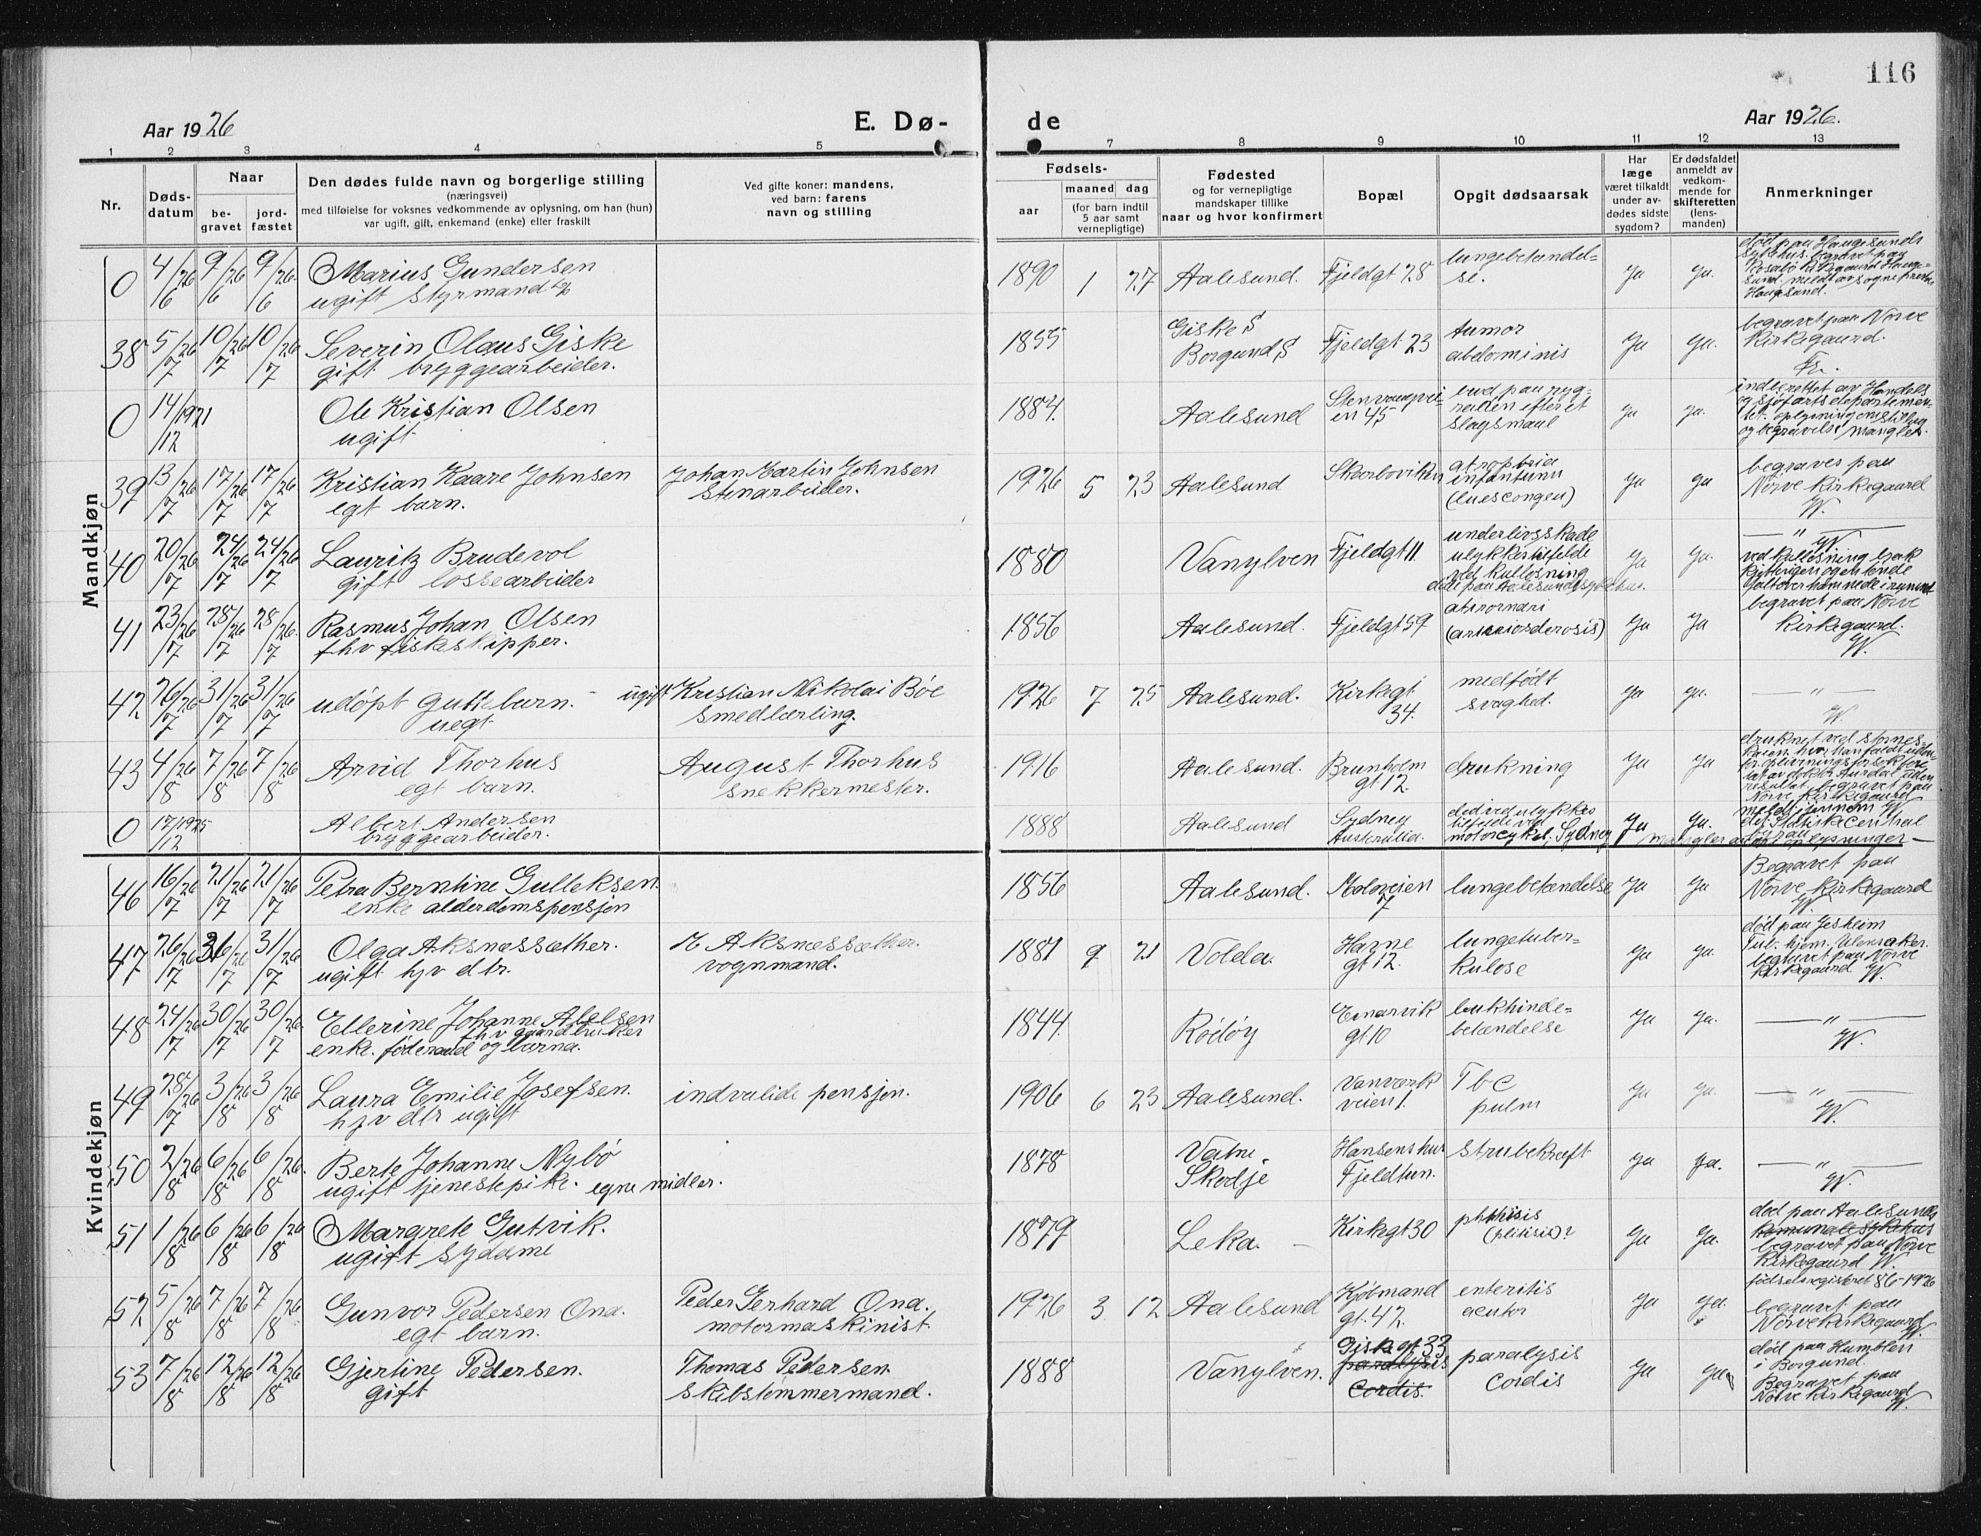 116
Aar 1926
E. Dø-
de
Aar 1926.
1 2 3 4 5 7 8 9 10 11 12 13
Nr.
Døds-
datum
Naar
be-
gravet
jord-
fæstet
Den dødes fulde navn og borgerlige stilling
(næringsvei)
med tilføielse for voksnes vedkommende av oplysning, om han (hun)
var ugift, gift, enkemand (enke) eller fraskilt
Ved gifte koner: mandens,
ved barn: farens
navn og stilling
Fødsels-
aar
maaned dag
(for barn indtil
5 aar samt
vernepligtige)
Fødested
og for vernepligtige
mandskaper tillike
naar og hvor konfirmert
Bopæl
Opgit dødsaarsak
Har
læge
været tilkaldt
under av-
dødes sidste
sygdom?
Er dødsfaldet
anmeldt av
vedkom-
mende for
skifteretten
(lens-
manden)
Anmerkninger
Mandkjøn
0 4/26 6 9/26 6 9/26 6 Marius Gundersen
ugift styrmand
1890 1 27 Aalesund. Fjeldgt 28 lungebetændel-
se. ja ja.
død paa Haugesunds
sykehus. begravet paa
Haugesund.
38 5/26 7 10/26 7 10/26 7 Severin Olaus Giske
gift bryggearbeider.
1855 Giske S
Borgund S Fjeldgt 23 tumor
abdominis ja ja.
begravet paa Nørve
Kirkegaard.
Fr.
0 14/1921 12 Ole Kristian Olsen
ugift
1884. Aalesund en 45 brud paa ryg-
raden efter et
slagsmaal ja ja.
indberettet av Handels
og sjøfartsdepartemen-
tet. oplysning om
og begravelse mangler.
39 13/26 7 17/26 7 17/26 7 Kristian Kaare Johnsen
egt barn.
Johan Martin Johnsen
stenarbeider.
1926 5 23 Aalesund Skarboviken atrophia
infantum
ja ja
begraves paa
Nørve Kirkegaard
W.
40 20/26 7 24/26 7 24/26 7 Lauritz Brudevol
gift lossearbeider
1880 Vanylven Fjeldgt 11 underlivsskade
ulykkestilfelde
ved kullosning
død paa Aalesund sykehus.
ja ja.
— " —
W.
ved kullosning
41 23/26 7 28/26 7 28/26 7 Rasmus Johan Olsen
fhv fiskeskipper.
1856 Aalesund. Fjeldgt 59
ja ja
begravet paa Nørve
Kirkegaard.
W.
42 26/26 7 31/26 7 31/26 7 udöpt guttebarn. -
uegt
ugift Kristian Nikolai Bøe
smedlærling.
1926 7 25 Aalesund. Kirkegt
34. medfödt
svaghed. ja ja.
— " —
W.
43 4/26 8 7/26 8 7/26 8 Arvid Thorhus
egt barn.
August Thorhus
snekkermester.
1916 Aalesund. Brunholm
gt 12. drukning ja ja
druknet ved
begravet paa
Nørve Kirkegaard
W
0 17/1925 12 Albert Andersen
bryggearbeider.
1888 Aalesund Sydney
Australia. død ved ulykkes
tilfælde ved
motorcykel, Sydney ja ja.
meldt gjennem
mangler andre oplysninger —
Kvindekjøn
46 16/26 7 21/26 7 21/26 7 Petra Berntine Gulleksen.
enke alderdomspensjon
1856 Aalesund. Moloveien
7 lungebetændelse ja ja
Begravet paa
Nørve Kirkegaard
W.
47 26/26 7 31/26 7 31/26 7 Olga Aksnessæther.
ugift hjv dtr.
M Aksnessæther.
vognmand.
1881 9 21 Volda. Harne
gt 12. lungetuber-
kulose ja ja.
død paa Jesheim
Tub. hjem. Ulensaker.
begravet paa Nørve
Kirkegaard W.
48 24/26 7 30/26 7 30/26 7 Ellerine Johanne
fhv gaardbruker
enke. føderaad og barna.
1844. Rødøy gt 10 bukhinde-
betændelse ja ja.
— " —
W.
49 28/26 7 3/26 8 3/26 8 Laura Emilie Josefsen.
hjv dtr ugift
indvalide pensjon.
1906 6 23 Aalesund. Vanværk
veien 1. Tbc
pulm ja ja.
— " —
W.
50 2/26 8 6/26 8 6/26 8 Berte Johanne Nybø
ugift tjenestepike. egne midler.
1878 Vatne.
Skodje Hansenshus
Fjeldtun. strubekræft ja ja.
— " —
W.
51 1/26 8 6/26 8 6/26 8 Margrete Gutvik.
ugift sydame
1879 Leka. — Kirkegt 30 phthisis
ja ja.
død paa Aalesunds
komunale sykehus
begravet paa Nørve
Kirkegaard W.
52 5/26 8 7/26 8 7/26 8 Gunvor Pedersen Ona.
egt barn.
Peder Gerhard Ona.
motormaskinist.
1926 3 12 Aalesund Kjøbmand
gt. 42. enteritis
acutor ja ja.
fødselsregisteret 86-1926
begravet paa
Nørve Kirkegaard
W.
53 7/26 8 12/26 8 12/26 8 Gjertine Pedersen.
gift
Thomas Pedersen
skibstømmermand.
1888 Vanylven. Giskegt 33
paralysis
Cordis. paralysis
Cordis ja ja
død paa Humblen
i Borgund.
Begravet paa
Nørve Kirkegaard
W.